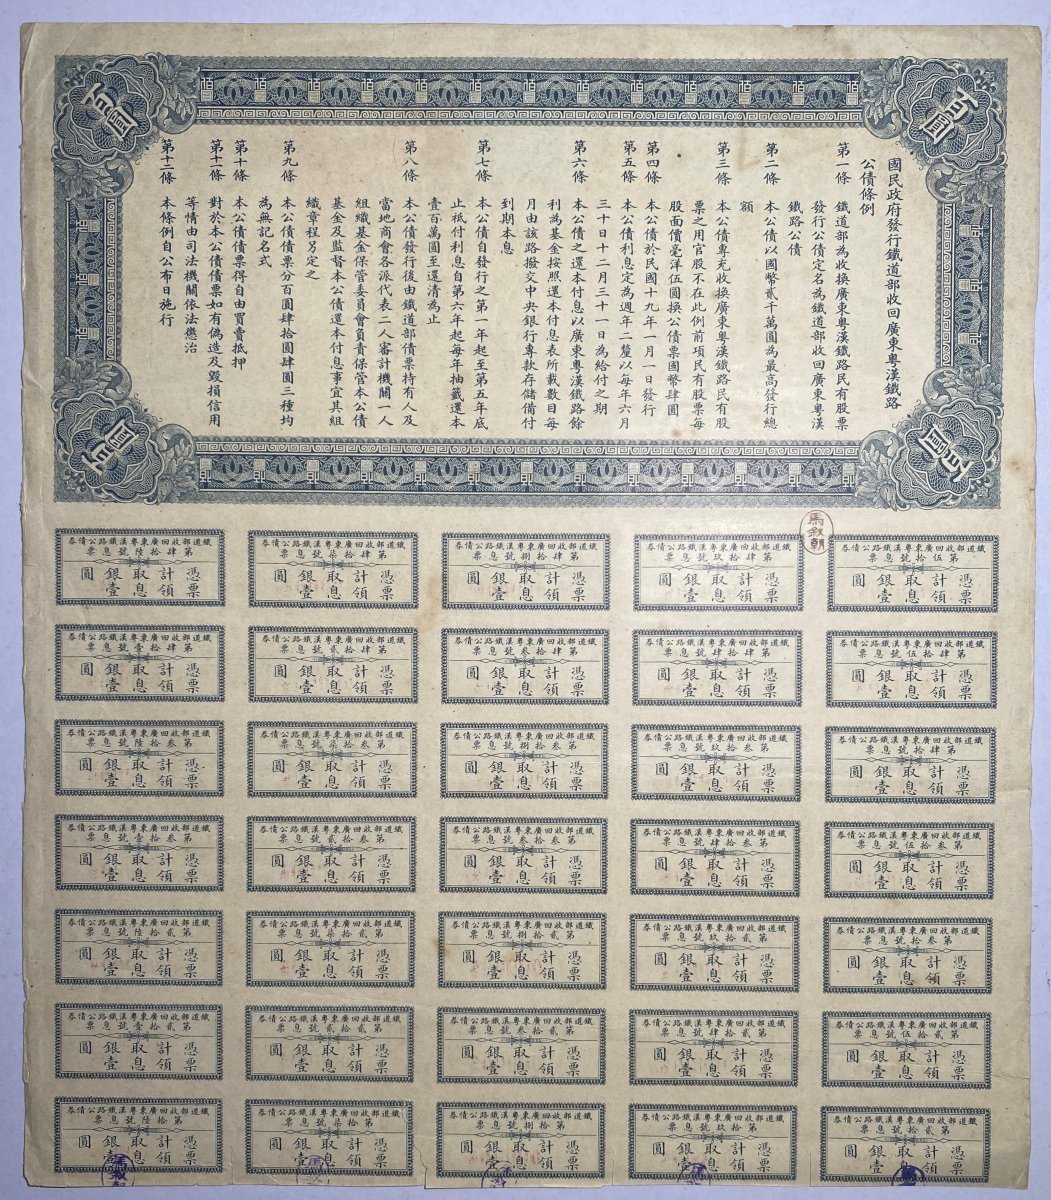 百圓
百圓
百圓
百圓
國民政府發行鐵道部收回廣東粵漢鐵路
公債條例
第一條 鐵道部為收換廣東粵漢鐵路民有股票
發行公債定名為鐵道部收回廣東粵漢
鐵路公債
第二條 本公債以國幣貳千萬圓為最高發行總
額
第三條 本公債專充收換廣東粵漢鐵路民有股
票之用官股不在此例前項民有股票每
股面價毫洋伍圓換公債票國幣肆圓
第四條 本公債於民國十九年一月一日發行
第五條 本公債利息定為週年二釐以每年六月
三十日十二月三十一日為給付之期
第六條 本公債之還本付息以廣東粵漢鐵路餘
利為基金按照還本付息表所載數目每
月由該路撥交中央銀行專款存儲備付
到期本息
第七條 本公債自發行之第一年起至第五年底
止祗付利息自第六年起每年抽籤還本
壹百萬圓至還清為止
第八條 本公債發行後由鐵道部債票持有人及
當地商會各派代表二人審計機關一人
組織基金保管委員會負責保管本公債
基金及監督本公債還本付息事宜其組
織章程另定之
第九條 本公債債票分百圓肆拾圓肆圓三種均
為無記名式
第十條 本公債債票得自由買賣抵押
第十一條 對於本公債債票如有偽造及毀損信用
等情由司法機關依法懲治
第十二條 本條例自公布日施行
馬敘朝
鐵道部收回廣東粵漢鐵路公債券
第伍拾號息票
憑票計領取息銀壹圓
鐵道部收回廣東粵漢鐵路公債券
第肆拾玖號息票
憑票計領取息銀壹圓
鐵道部收回廣東粵漢鐵路公債券
第肆拾捌號息票
憑票計領取息銀壹圓
鐵道部收回廣東粵漢鐵路公債券
第肆拾柒號息票
憑票計領取息銀壹圓
鐵道部收回廣東粵漢鐵路公債券
第肆拾陸號息票
憑票計領取息銀壹圓
鐵道部收回廣東粵漢鐵路公債券
第肆拾伍號息票
憑票計領取息銀壹圓
鐵道部收回廣東粵漢鐵路公債券
第肆拾肆號息票
憑票計領取息銀壹圓
鐵道部收回廣東粵漢鐵路公債券
第肆拾叁號息票
憑票計領取息銀壹圓
鐵道部收回廣東粵漢鐵路公債券
第肆拾貳號息票
憑票計領取息銀壹圓
鐵道部收回廣東粵漢鐵路公債券
第肆拾壹號息票
憑票計領取息銀壹圓
鐵道部收回廣東粵漢鐵路公債券
第肆拾號息票
憑票計領取息銀壹圓
鐵道部收回廣東粵漢鐵路公債券
第叁拾玖號息票
憑票計領取息銀壹圓
鐵道部收回廣東粵漢鐵路公債券
第叁拾捌號息票
憑票計領取息銀壹圓
鐵道部收回廣東粵漢鐵路公債券
第叁拾柒號息票
憑票計領取息銀壹圓
鐵道部收回廣東粵漢鐵路公債券
第叁拾陸號息票
憑票計領取息銀壹圓
鐵道部收回廣東粵漢鐵路公債券
第叁拾伍號息票
憑票計領取息銀壹圓
鐵道部收回廣東粵漢鐵路公債券
第叁拾肆號息票
憑票計領取息銀壹圓
鐵道部收回廣東粵漢鐵路公債券
第叁拾叁號息票
憑票計領取息銀壹圓
鐵道部收回廣東粵漢鐵路公債券
第叁拾貳號息票
憑票計領取息銀壹圓
鐵道部收回廣東粵漢鐵路公債券
第叁拾壹號息票
憑票計領取息銀壹圓
鐵道部收回廣東粵漢鐵路公債券
第叁拾號息票
憑票計領取息銀壹圓
鐵道部收回廣東粵漢鐵路公債券
第貳拾玖號息票
憑票計領取息銀壹圓
鐵道部收回廣東粵漢鐵路公債券
第貳拾捌號息票
憑票計領取息銀壹圓
鐵道部收回廣東粵漢鐵路公債券
第貳拾柒號息票
憑票計領取息銀壹圓
鐵道部收回廣東粵漢鐵路公債券
第貳拾陸號息票
憑票計領取息銀壹圓
鐵道部收回廣東粵漢鐵路公債券
第貳拾伍號息票
憑票計領取息銀壹圓
鐵道部收回廣東粵漢鐵路公債券
第貳拾肆號息票
憑票計領取息銀壹圓
鐵道部收回廣東粵漢鐵路公債券
第貳拾叁號息票
憑票計領取息銀壹圓
鐵道部收回廣東粵漢鐵路公債券
第貳拾貳號息票
憑票計領取息銀壹圓
鐵道部收回廣東粵漢鐵路公債券
第貳拾壹號息票
憑票計領取息銀壹圓
鐵道部收回廣東粵漢鐵路公債券
第貳拾號息票
憑票計領取息銀壹圓
鐵道部收回廣東粵漢鐵路公債券
第拾玖號息票
憑票計領取息銀壹圓
鐵道部收回廣東粵漢鐵路公債券
第拾捌號息票
憑票計領取息銀壹圓
鐵道部收回廣東粵漢鐵路公債券
第拾柒號息票
憑票計領取息銀壹圓
鐵道部收回廣東粵漢鐵路公債券
第拾陸號息票
憑票計領取息銀壹圓